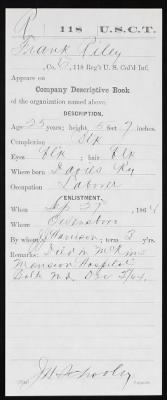 R | 118 | U.S.C.T.
Frank Riley
, Co. C, 118 Reg't U. S. Col'd Inf.
Appears on
Company Descriptive Book
of the organization named above.
DESCRIPTION.
Age 25 years; height 5 feet 7 inches.
Complexion Blk
Eyes Blk ; hair Blk
Where born Davies Ky
Occupation Laborer
ENLISTMENT.
When 27 , 186
Where Owensboro
By whom Harrison ; term 3 y'rs.
Remarks: Died in McKims
Mansion Hospital
Balt Md